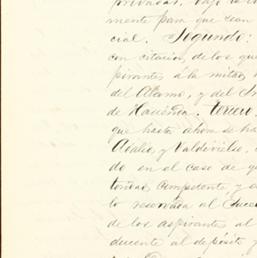 privadas, bajo la
mente para que sean
cial. Segundo:
con citacion de los que
pirantes á la mitad
del Alamo, y del
de Hacienda. Tercero:
que hasta ahora se ha
Abalia y Valdivieles,
do en el caso de
competente y
lo reservada al
de los aspirantes al
ducente al depósito y